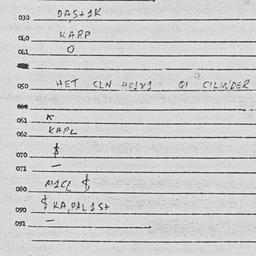 030 DAS+1K
040 KARP
041 0
050 HET CLN HC1V1 01 CILINDER
060
061 K
062 KAPL
070 $
071 –
080 M1CL $
090 $ KA,DAL1S+
091 –